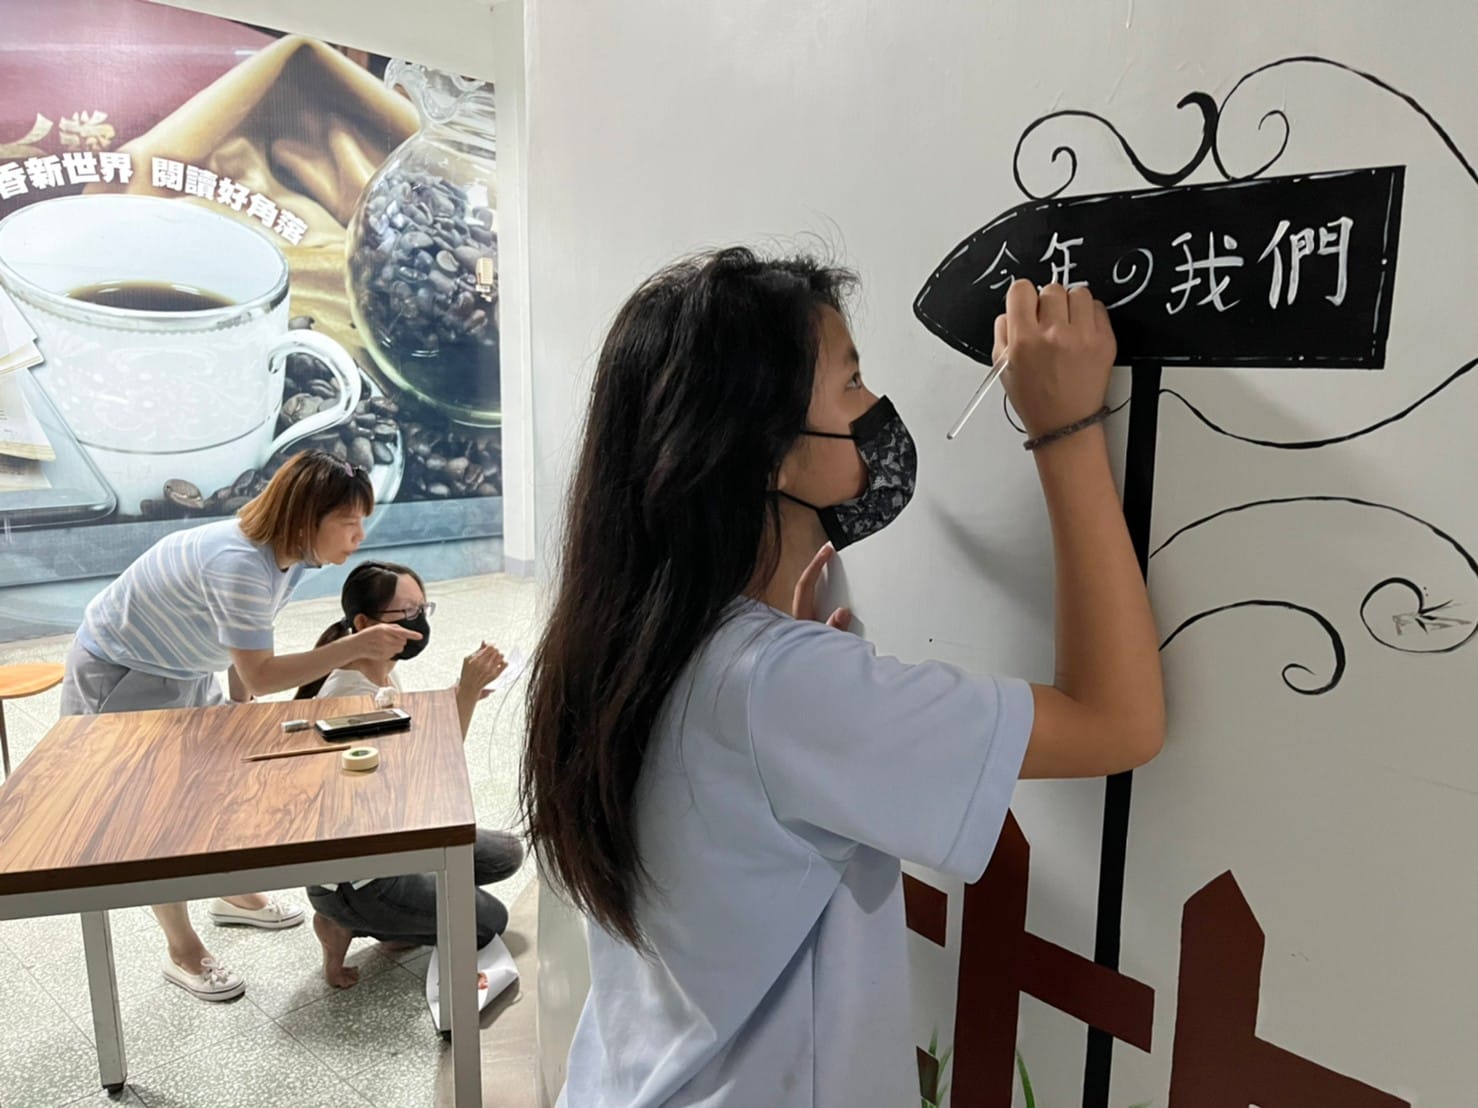 香新世界 閱讀好角落
今年の我們